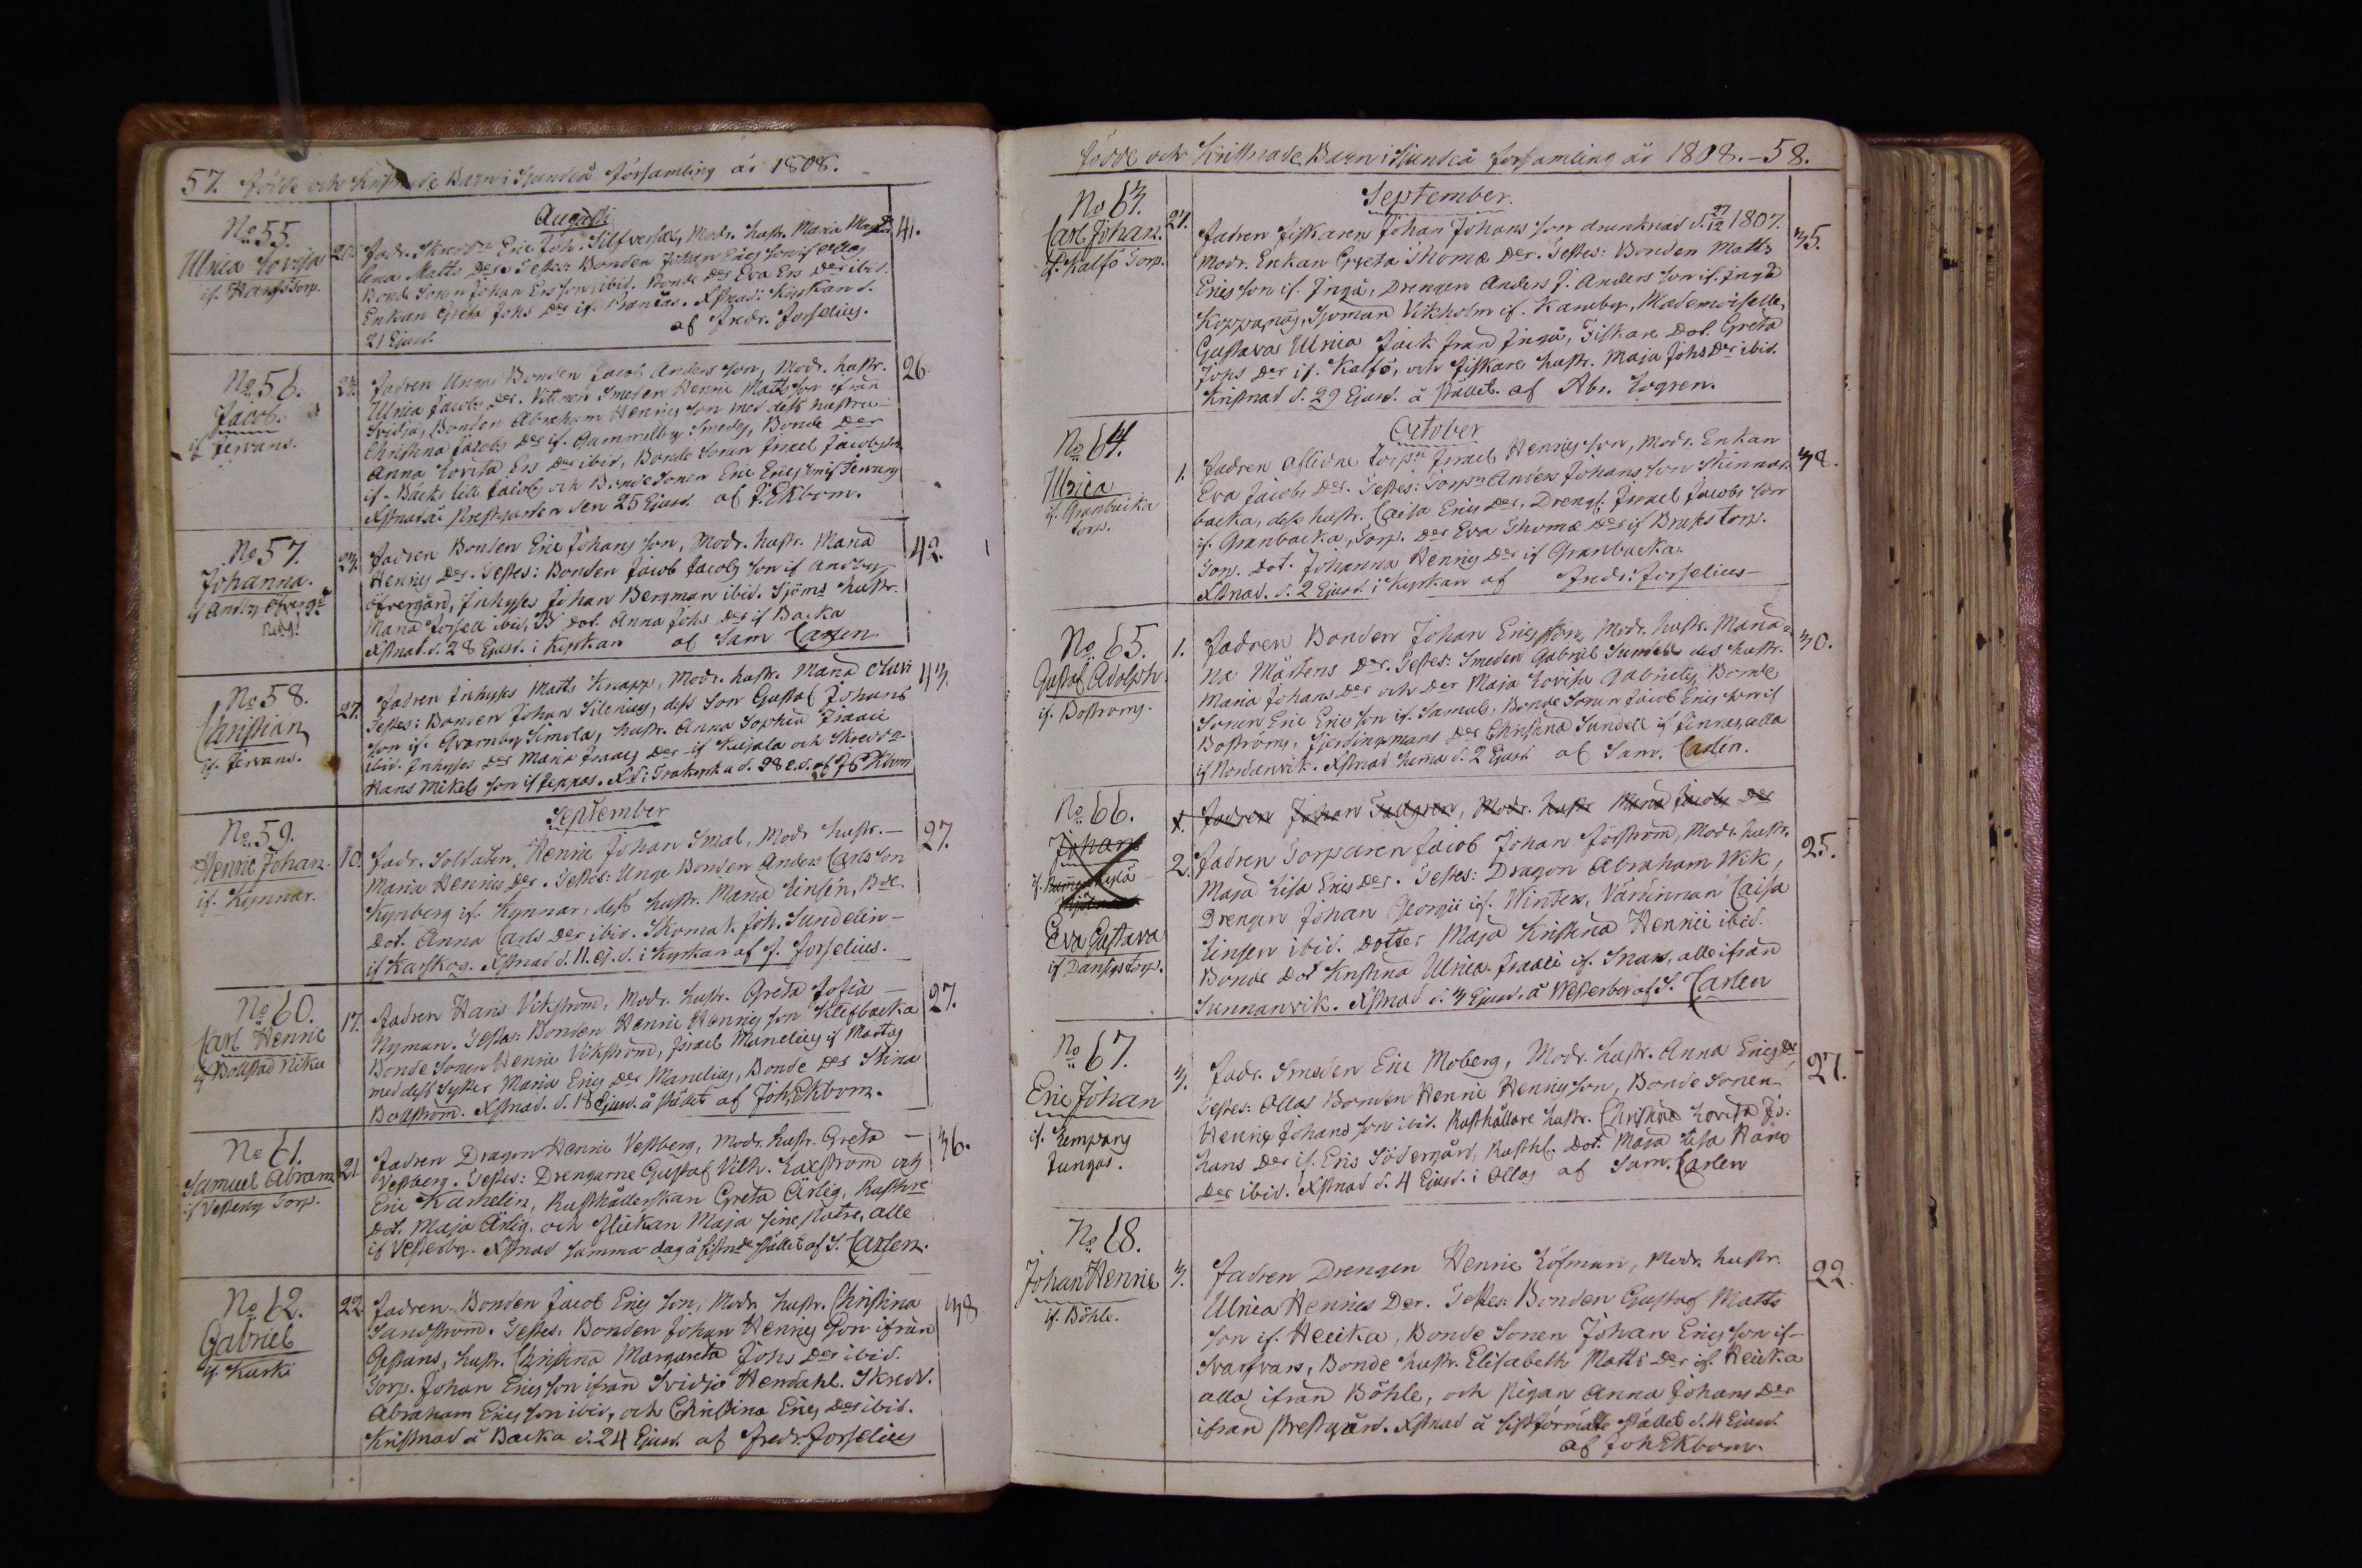 57. Födde och Kristnade Barn i Sjundeå församling år 1808.
Augusti
No 55.
Ulrica Lovisa
if. Hansas Torp.
20.
Fadr. Skredd. Eric Joh. Silfversax, Modr. hustr. Maria Mag
lena Matts Dr. Testes: Bonden Johan Erics son if Ollas
Bonde Sonen Johan Ers son ibid. Bonde Dr Eva Ers Dr ibid.
Enkan Greta Johs Dr if. Xstnad i Kyrkan d.
21 Ejusd. af Fredr. Forselius.
41.
No 56.
Jacob.
if Jervans.
Fadren Unga Bonden Jacob Anders son, Modr. hustr.
Ulrica Jacobs Dr. Vitnen Smeden Henric Matts son från
Svidja, Bonden Abraham Henrics son med dess hustru
Christina Jacobs Dr if. Gammelby Smeds, Bonde Dr
Anna Lovisa Ers Dr ibid, Bonde Sonen Israel Jacobs son
if. Bäcks lill Jacobs och Bonde Sonen Eric Erics son if Jervans
Xstnad å Prestgården den 25 Ejusd. af J. Ekbom.
26.
No 57.
Johanna.
if Andby Öfverg.
Fadren Bonden Eric Johans son, Modr. hustr. Maria
Henrics Dr. Testes: Bonden Jacob Jacobs son if Andby
Öfvergård, Inhyses Johan Bergman ibid. Sjöms hustr.
Maria Forsell ibid, B. Dot. Anna Johs Dr if Backa
Xstnad d. 28 Ejusd. i Kyrkan af Sam Carlen
42.
No 58.
Christian
if. Jervans.
27.
Fadren Inhyses Matts Knapp, Modr. hustr. Maria
Testes: Bonden Johan Silenius, dess Son Gustaf Johans
son if. Qvarnby Simola, hustr. Anna Sophia Isaaci
ibid. Inhyses Dr Maria Isaacs Dr if Kaijala och Skredd
Hans Mikels son if Jeppas. Xd: i Kyrka d. 28 e.d. af J. Ekbom
43.
September
No 59.
Henric Johan
if. Kynnar.
10.
Fadr. Soldaten Henric Johan Smal, Modr hustr.
Maria Henrics Dr. Testes: Unge Bonden Anders Carls son
Kynberg if. Kynnar, dess hustr. Maria Linsén, Bde
Dot. Anna Carls Dr ibid. Skomak. Joh. Sundelin
if Karskog. Xstnad d. 11. ej. d. i Kyrkan af F. Forselius.
27.
No 60.
Carl Henric
if Bollstad Nicku
17.
Fadren Hans Vikström, Modr. hustr. Greta Sofia
Nyman. Testes: Bonden Henric Henrics son Klefbacka
Bonde Sonen Henric Vikström, Israel Manelius if Martas
med dess Syster Maria Erics Dr Manelius, Bonde Dr Stina
Bollström. Xstnad. d. 18 Ejusd. å stället af Joh. Ekbom.
27.
No 61.
Samuel Abram
if Vesterby Torp.
21.
Fadren Dragon Henric Vestberg, Modr. hustr. Greta
Vestberg. Testes: Drengarne Gustaf Vilh. Laxström och
Eric Kamelin, Rusthållerskan Greta Ärlig, Rusthre
Dot. Maja Ärlig, och Flickan Maja, alle
if Vesterby. Xstnad samma dag å sistnde stället af S. Carlen.
36.
No 62.
Gabriel
if. Kurki
22.
Fadren Bonden Jacob Erics son, Modr. hustr. Christina
Sandström. Testes: Bonden Johan Henrics son ifrån
Gestans, hustr. Christina Margareta Johs Dr ibid.
Torp. Johan Erics son ifrån Svidja Hendahl. Skredd.
Abraham Erics son ibid, och Christina Erics Dr ibid.
Kristnad å Backa d. 24 Ejusd. af Fredr. Forselius
38
Födde och Kristnade Barn i Sjundeå församling år 1808. - 58.
September.
No 63.
Carl Johan.
if. Kalfö Torp.
27.
Fadren Fiskaren Johan Johans son drunknad d. 27/12 1807.
Modr. Enkan Greta Thomæ Dr. Testes: Bonden Matts
Erics son if. Ingå, Drengen Anders J. Anders son if. Ingå
Kopparnäs, Sjöman Vikholm if. Kamby, Mademoiselle
Gustava Ulrica Jack från Ingå, Fiskare Dot. Greta
Johs Dr if. Kalfö, och Fiskare hustr. Maja Johs Dr ibid.
Kristnad d. 29 Ejusd. å stället. af Abr. Logren.
35.
October
No 64.
Ulrica
if. Granbacka
Torp.
1.
Fadren aflidne Torpn Israel Henrics son, Modr. Enkan
Eva Jacobs Dr. Testes: Torpn Anders Johans son Skinnar
backa, dess hustr. Caisa Erics Dr, Dreng. Israel Jacobs son
if. Granbacka, Torp. Dr Eva Thomæ Dr if Bruks torp.
Torp. Dot. Johanna Henrics Dr if Granbacka.
Xstnad. d. 2 Ejusd. i Kyrkan af Fredr. Forselius
38.
No 65.
Gustaf Adolph
if. Boströms.
1.
Fadren Bonden Johan Erics son, Modr. hustr. Maria
na Mårtens Dr. Testes: Smeden Gabriel Sundell des hustr.
Maria Johans Dr och Dr Maja Lovisa Gabriels, Bonde
Sonen Eric Erics son if. Samuls, Bonde Sonen Jacob Erics son if
Boströms, Fjerdingsmans Dr Christina Sundell if Finnas, alla
if Nordanvik. Xstnad hema d. 2 Ejusd af Sam. Carlen.
30.
No 66.
Johan
Fadren Johan Tallgren, Modr. hustr Maria Jacobs Dr
Eva Gustava
if Dansas Torp.
2.
Fadren Torparen Jacob Johan Sjöström, Modr. hustr.
Maja Lisa Erics Dr. Testes: Dragon Abraham Wik,
Drengen Johan Georgii if. Winters, Väninnan Caisa
Linsen ibid. dotter Maja Kristina Henrici ibid.
Bonde Dot Kristina Ulrica Isaaci if. Snars, alle ifrån
Sunnanvik. Xstnad d. 3 Ejusd. å Westerby af S. Carlen
25.
No 67.
Eric Johan
if. Kempans
Jungas.
3.
Fadr. Smeden Eric Moberg, Modr. hustr. Anna Erics Dr
Testes: Ollas Bonden Henric Henrics son, Bonde Sonen
Henric Johans son ibid. Rusthållare hustr. Christina Lovisa Jo-
hans Dr if. Eris Södergård, Rusthl. Dot. Maja Lisa Hans
Dr ibid. Xstnad d. 4 Ejusd. i Ollas af Sam. Carlen
27.
No 68.
Johan Henric
if. Böhle.
3.
Fadren Drengen Henric Löfman, Modr. hustr.
Ulrica Henrics Dr. Testes: Bonden Gustaf Matts
son if. Heicka, Bonde Sonen Johan Erics son if
Svartvars, Bonde hustr. Elisabeth Matts Dr if. Heicka
alla ifrån Böhle, och Pigan Anna Johans Dr
ifrån Prestgård. Xstnad å sistförmälte stället d. 4 Ejusd.
af Joh Ekbom.
22.